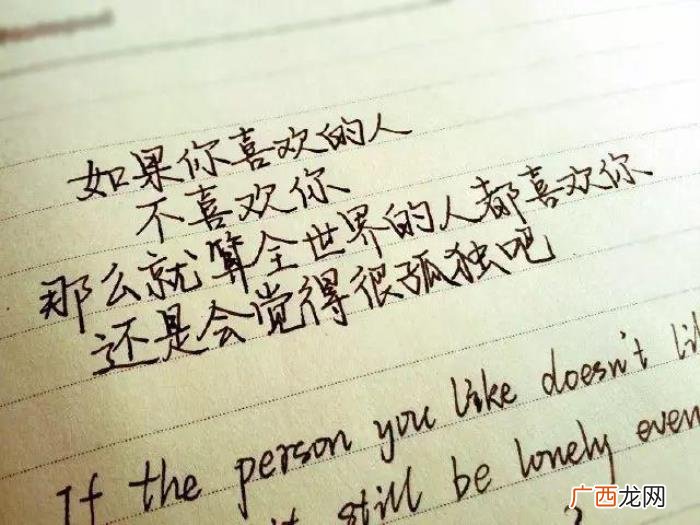 如果你喜欢的人
不喜欢你
那么就算全世界的人都喜欢你
还是会觉得很孤独吧
If the person you like doesn't
still be lonely even
广西龙网